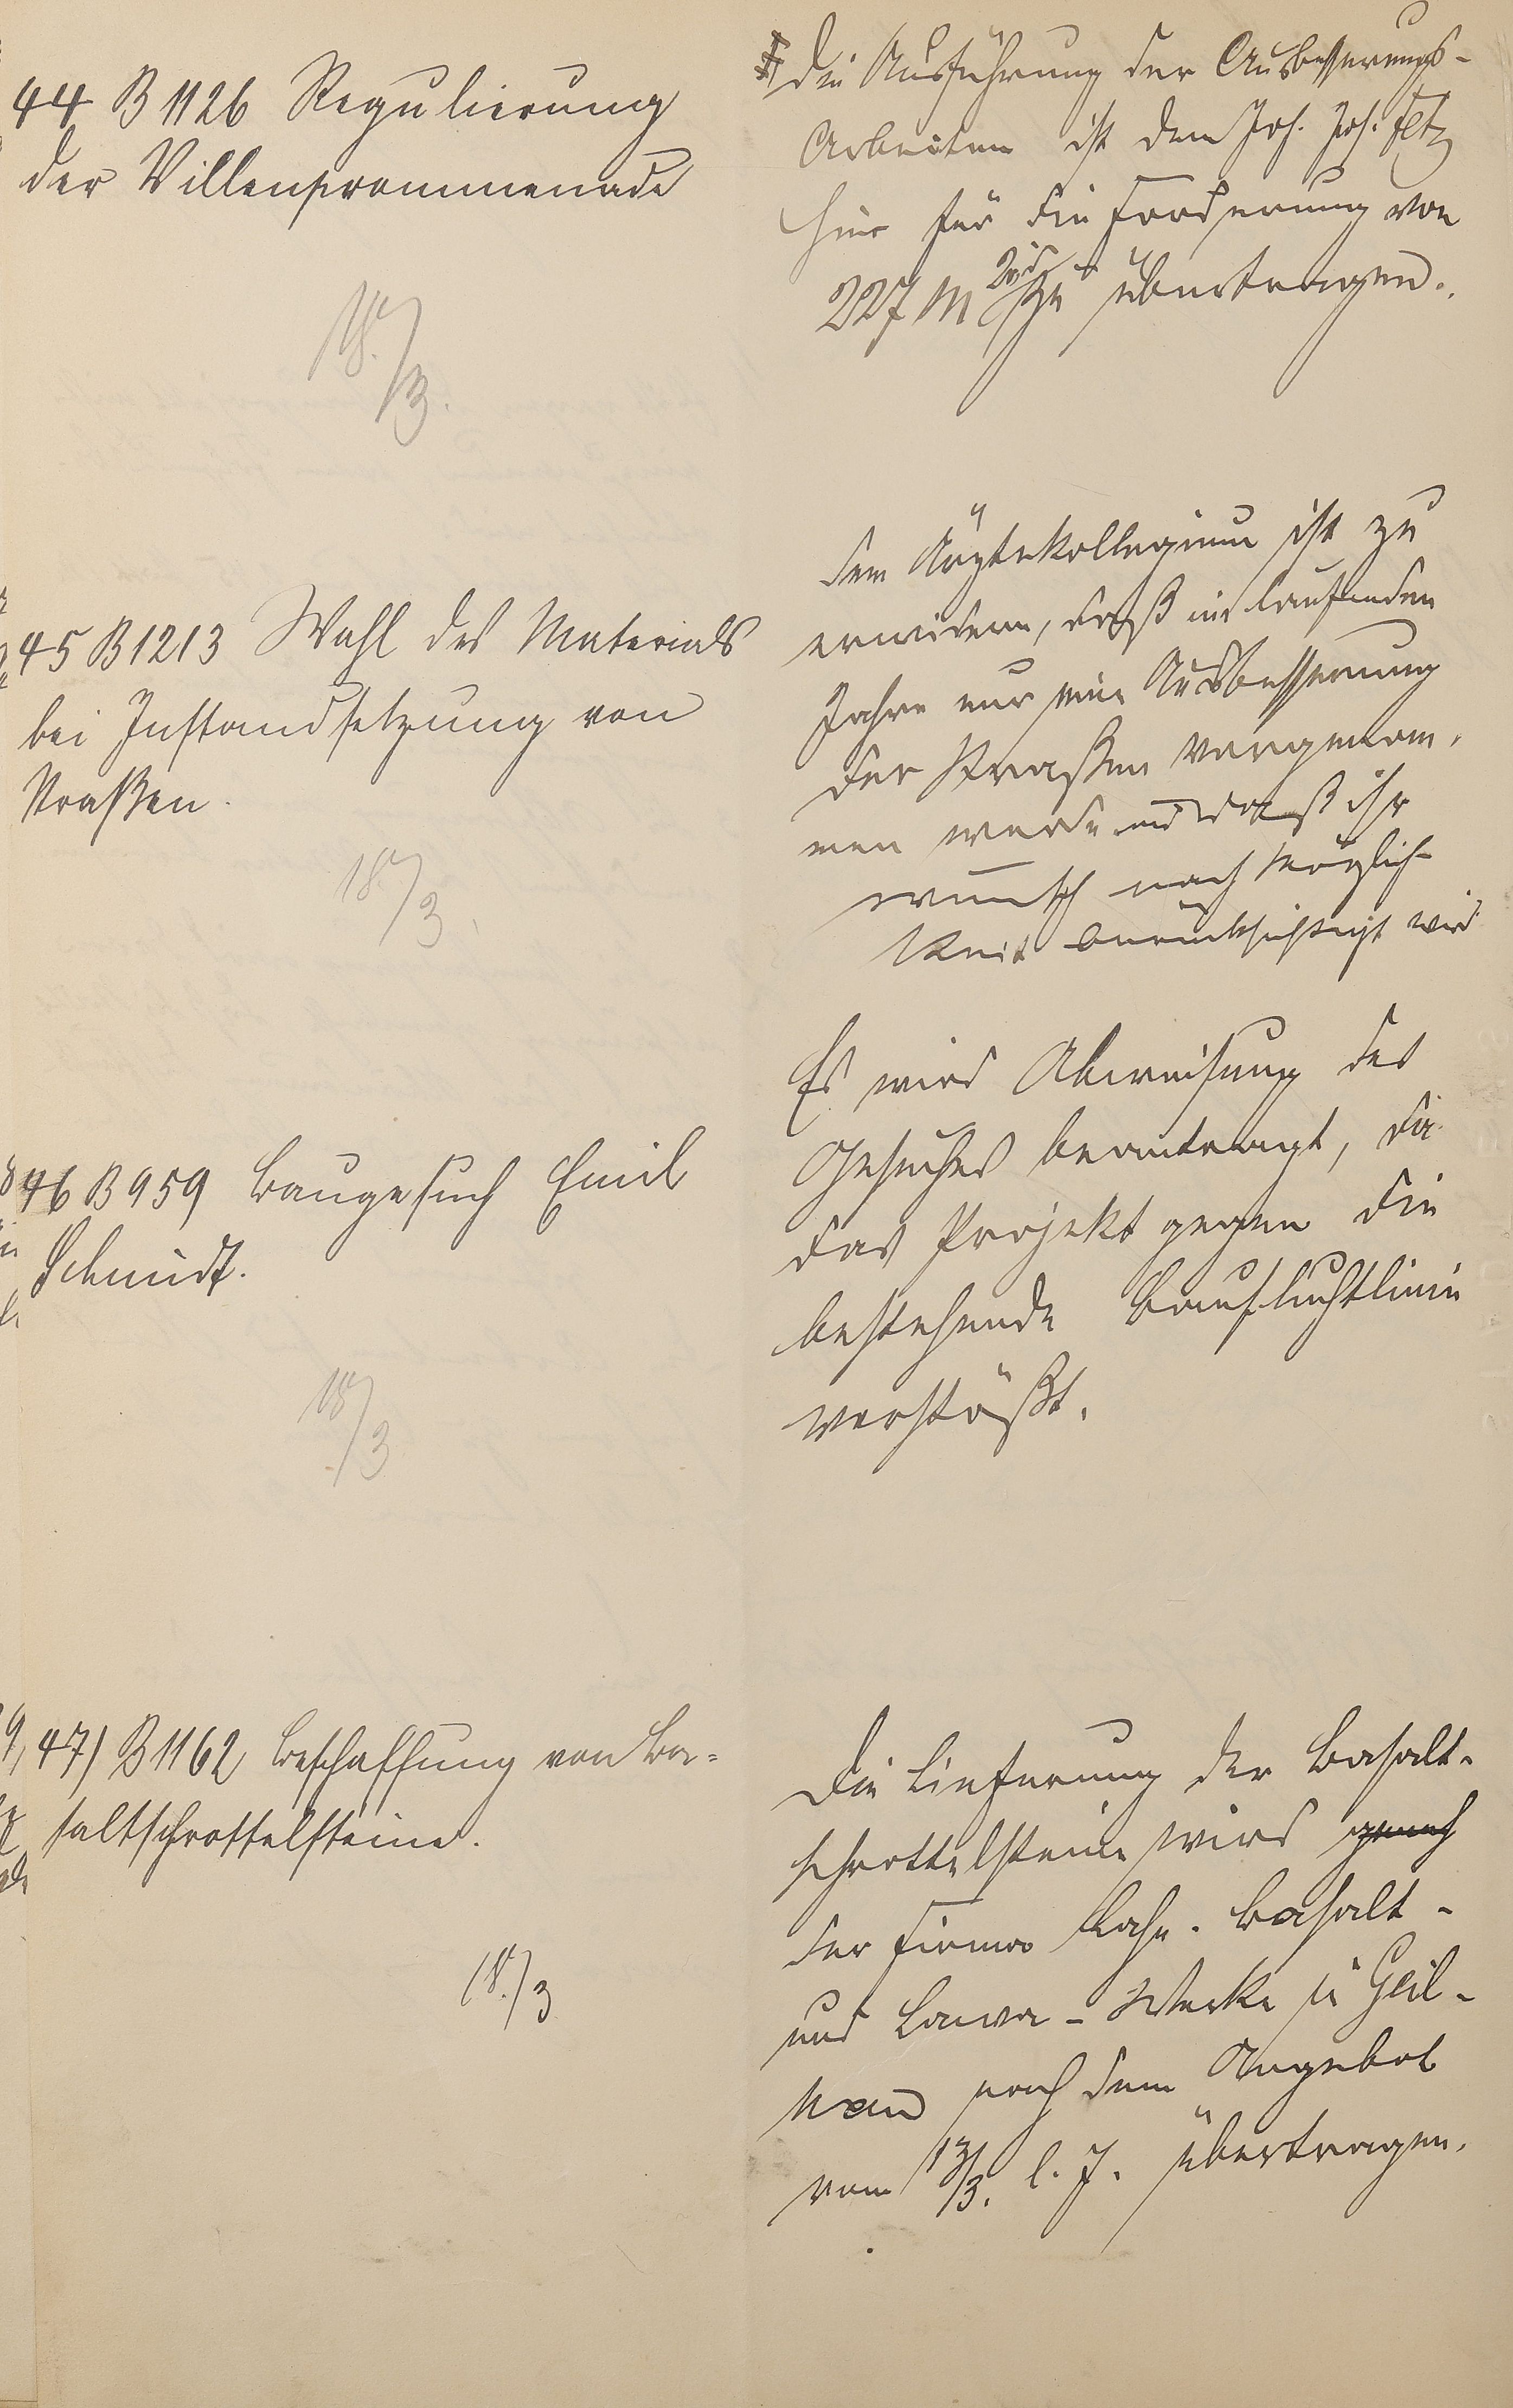 44 B 1126 Regulierung
der Villenprommenade
18./3.
Die Ausführung der Ausbesserungs-
Arbeiten ist dem Joh. Jos. Fetz
hier für die Forderung von
227 M zu übertragen.
45 B 1213 Wahl des Materials
bei Instandsetzung von
Straßen.
18./3.
Dem Ärztekollegium ist zu
erwidern, daß im laufenden
Jahre nur eine Ausbesserung
der Straßen vorgenom-
men werde und daß ihr
Wunsch nach Möglich-
keit berücksichtigt wird
46 B 959 Baugesuch Emil
Schmidt.
18/3
Es wird Abweisung des
Gesuches beantragt, da
das Projekt gegen die
bestehende Baufluchtlinie
verstößt.
47) B 1162 Beschaffung von Ba-
saltschrottelsteine.
18./3
Die Lieferung der Basalt-
schrottelsteine wird
der Firma Lahn-Basalt-
und Lava-Werke zu Geil-
nau nach dem Angebot
vom 13/3. l. J. übertragen.